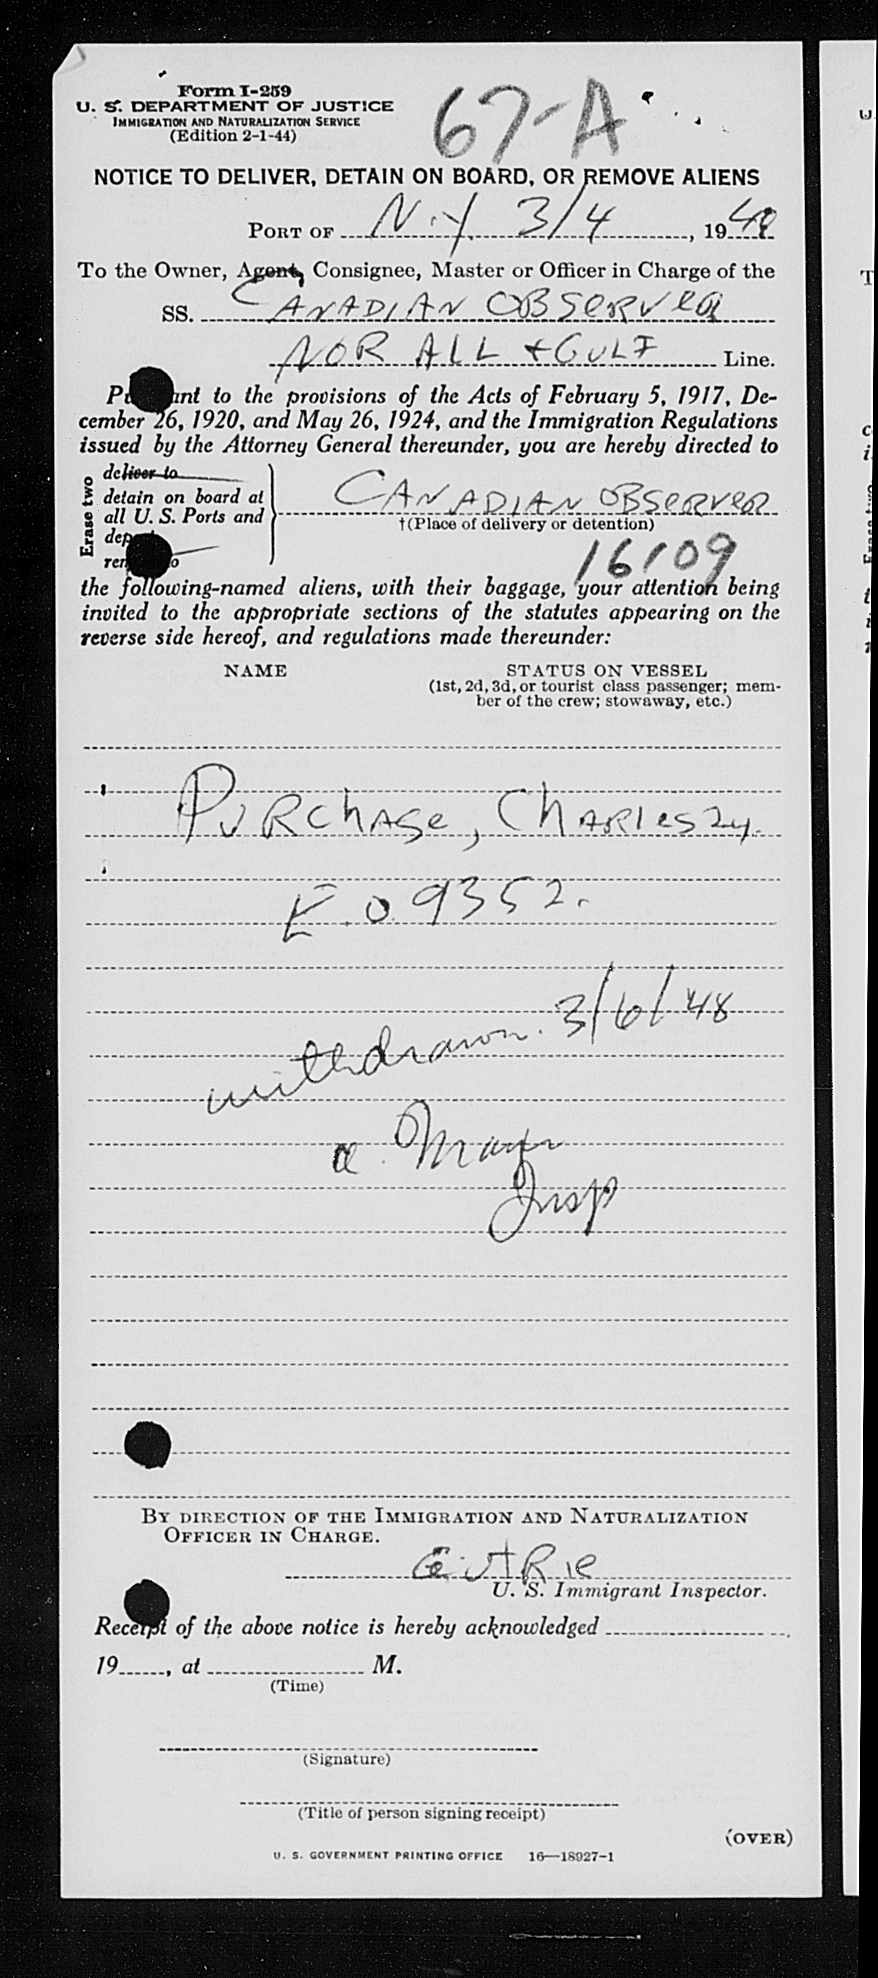 Form I-259
U. S. DEPARTMENT OF JUSTICE
IMMIGRATION AND NATURALIZATION SERVICE
(Edition 2-1-44)
67-A
NOTICE TO DELIVER, DETAIN ON BOARD, OR REMOVE ALIENS
PORT OF N.Y. 3/4, 1948
To the Owner, Agent, Consignee, Master or Officer in Charge of the
SS. CANADIAN OBSERVER
NOR ALL + GULF Line.
Pursuant to the provisions of the Acts of February 5, 1917, De-
cember 26, 1920, and May 26, 1924, and the Immigration Regulations
issued by the Attorney General thereunder, you are hereby directed to
Erase two
deliver to
detain on board at
all U. S. Ports and
CANADIAN OBSERVER
†(Place of delivery or detention)
16109
the following-named aliens, with their baggage, your attention being
invited to the appropriate sections of the statutes appearing on the
reverse side hereof, and regulations made thereunder:
NAME STATUS ON VESSEL
(1st, 2d, 3d, or tourist class passenger; mem-
ber of the crew; stowaway, etc.)
PURChASe, ChARles 24.
E.09352.
withdrawn. 3/6/48
a.
Insp
BY DIRECTION OF THE IMMIGRATION AND NATURALIZATION
OFFICER IN CHARGE.
U. S. Immigrant Inspector.
Receipt of the above notice is hereby acknowledged
19, at M.
(Time)
(Signature)
(Title of person signing receipt)
(OVER)
U. S. GOVERNMENT PRINTING OFFICE 16—18927-1